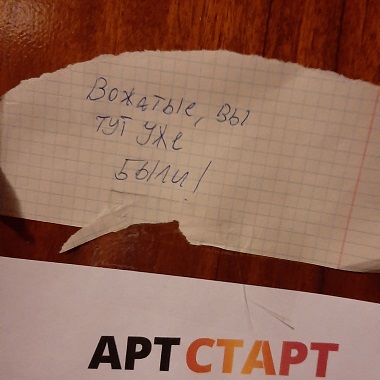 Вожатые, вы
тут уже
были!
АРТСТАРТ